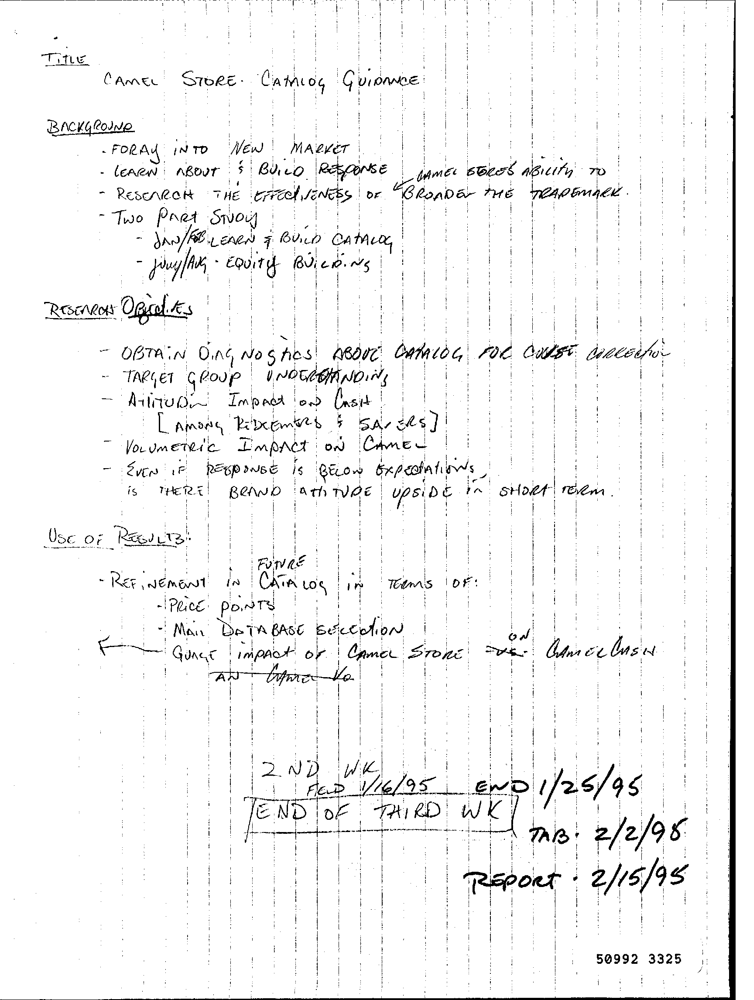 TITLE
CAMEL STORE - CATALOG GUIDANCE
BACKGROUND
- FORAY INTO NEW MARKET
- LEARN ABOUT & BUILD RESPONSE
CAMEL STORE'S ABILITY TO
- RESEARCH THE EFFECTIVENESS OF BROADEN THE TRADEMARK.
- TWO PART STUDY
- JAN/FEB LEARN & BUILD CATALOG
- JULY/AUG - EQUITY BUILDING
RESEARCH OBJECTIVES
- OBTAIN DIAGNOSTICS ABOUT CATALOG FOR COURSE CORRECTION
- TARGET GROUP UNDERSTANDING
- ATTITUDIN IMPACT ON CASH
[AMONG REDEEMERS & SAVERS]
- VOLUMETRIC IMPACT ON CAMEL
- EVEN IF RESPONSE IS BELOW EXPECTATIONS,
IS THERE BRAND ATTITUDE UPSIDE IN SHORT TERM.
USE OF RESULTS:
FUTURE
- REFINEMENT IN CATALOG IN TERMS OF:
- PRICE POINTS
- MAIL DATABASE SELECTION
ON
GUAGE IMPACT OF CAMEL STORE vs. CAMEL CASH
AN CAMEL
2ND WK
FIELD 1/16/95 END 1/25/95
END OF THIRD WK
TAB. 2/2/95
REPORT. 2/15/95
50992 3325